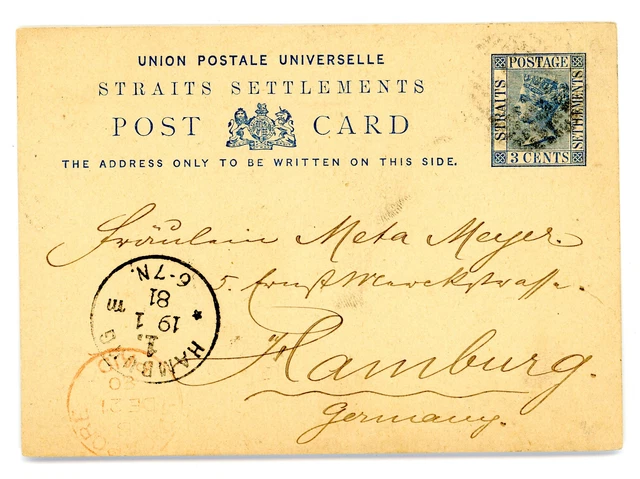 UNION POSTALE UNIVERSELLE
STRAITS SETTLEMENTS
POST CARD
THE ADDRESS ONLY TO BE WRITTEN ON THIS SIDE.
POSTAGE
STRAITS
SETTLEMENTS
3 CENTS
Fräulein Meta Meyer.
5. Ernst Merckstrasse.
Hamburg.
Germany.
HAMBURG
1.
19 1
81
6-7N.
DE 21